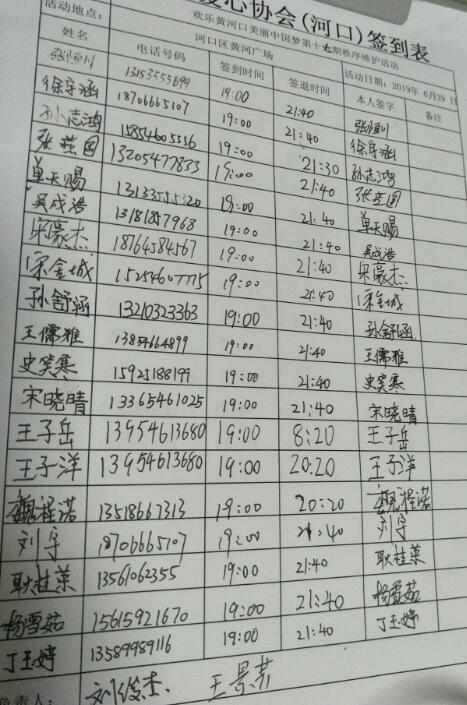 爱心协会(河口)签到表
活动地点: 欢乐黄河口美丽中国梦第十七期秩序维护活动
河口区黄河广场 活动日期: 2019年 6月29日
姓名 电话号码 签到时间 签退时间 本人签字 备注
张恒川 13153555699 19:00 21:40 张恒川
徐守涵 18706665107 19:00 21:40 徐守涵
孙志鸿 15854605556 19:00 21:30 孙志鸿
张益国 13205477833 19:00 21:40 张益国
单天赐 19:00 21:40 单天赐
吴成浩 13181857968 19:00 21:40 吴成浩
宋豪杰 18764584567 19:00 21:40 宋豪杰
宋金城 15254607775 19:00 21:40 宋金城
孙舒涵 13210323363 19:00 21:40 孙舒涵
王儒雅 13854664899 19:00 21:40 王儒雅
史笑寒 15925188199 19:00 21:40 史笑寒
宋晓晴 13365461025 19:00 21:40 宋晓晴
王子岳 13954613680 19:00 8:20 王子岳
王子洋 13954613680 19:00 20:20 王子洋
魏程诺 13518667313 19:00 20:20 魏程诺
刘宇 18706665107 19:00 21:40 刘宇
耿桂荣 13561062355 19:00 21:40 耿桂荣
杨雪茹 15615921670 19:00 21:40 杨雪茹
丁玉婷 13589989116 19:00 21:40 丁玉婷
负责人: 刘俊杰 王景芳